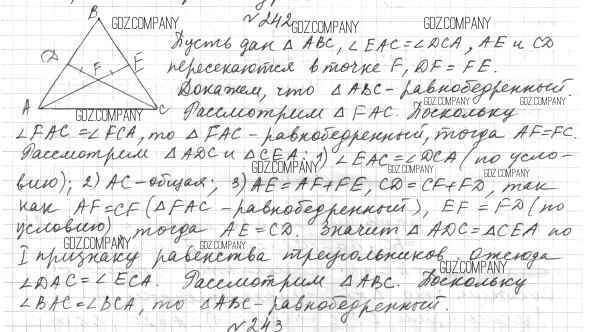 №242
B
GDZ.COMPANY GDZ.COMPANY GDZ.COMPANY
D F E
Пусть дан △ ABC, ∠EAC=∠DCA, AE и CD
пересекаются в точке F, DF = FE.
Докажем, что △ABC-равнобедренный.
A C
GDZ.COMPANY GDZ.COMPANY GDZ.COMPANY
Рассмотрим △ FAC. Поскольку
∠FAC=∠FCA, то △ FAC- равнобедренный, тогда AF=FC.
Рассмотрим △ ADC и △CEA: 1) ∠EAC=∠DCA (по усло-
GDZ.COMPANY GDZ.COMPANY GDZ.COMPANY
вию); 2) AC-общая; 3) AE=AF+FE, CD=CF+FD, так
как AF=CF (△FAC -равнобедренный), EF=FD (по
условию) тогда AE=CD. Значит △ADC=△CEA по
GDZ.COMPANY GDZ.COMPANY
I признаку равенства треугольников, отсюда
GDZ.COMPANY
∠DAC=∠ECA. Рассмотрим △ABC. Поскольку
∠BAC=∠BCA, то △ABC- равнобедренный.
№243